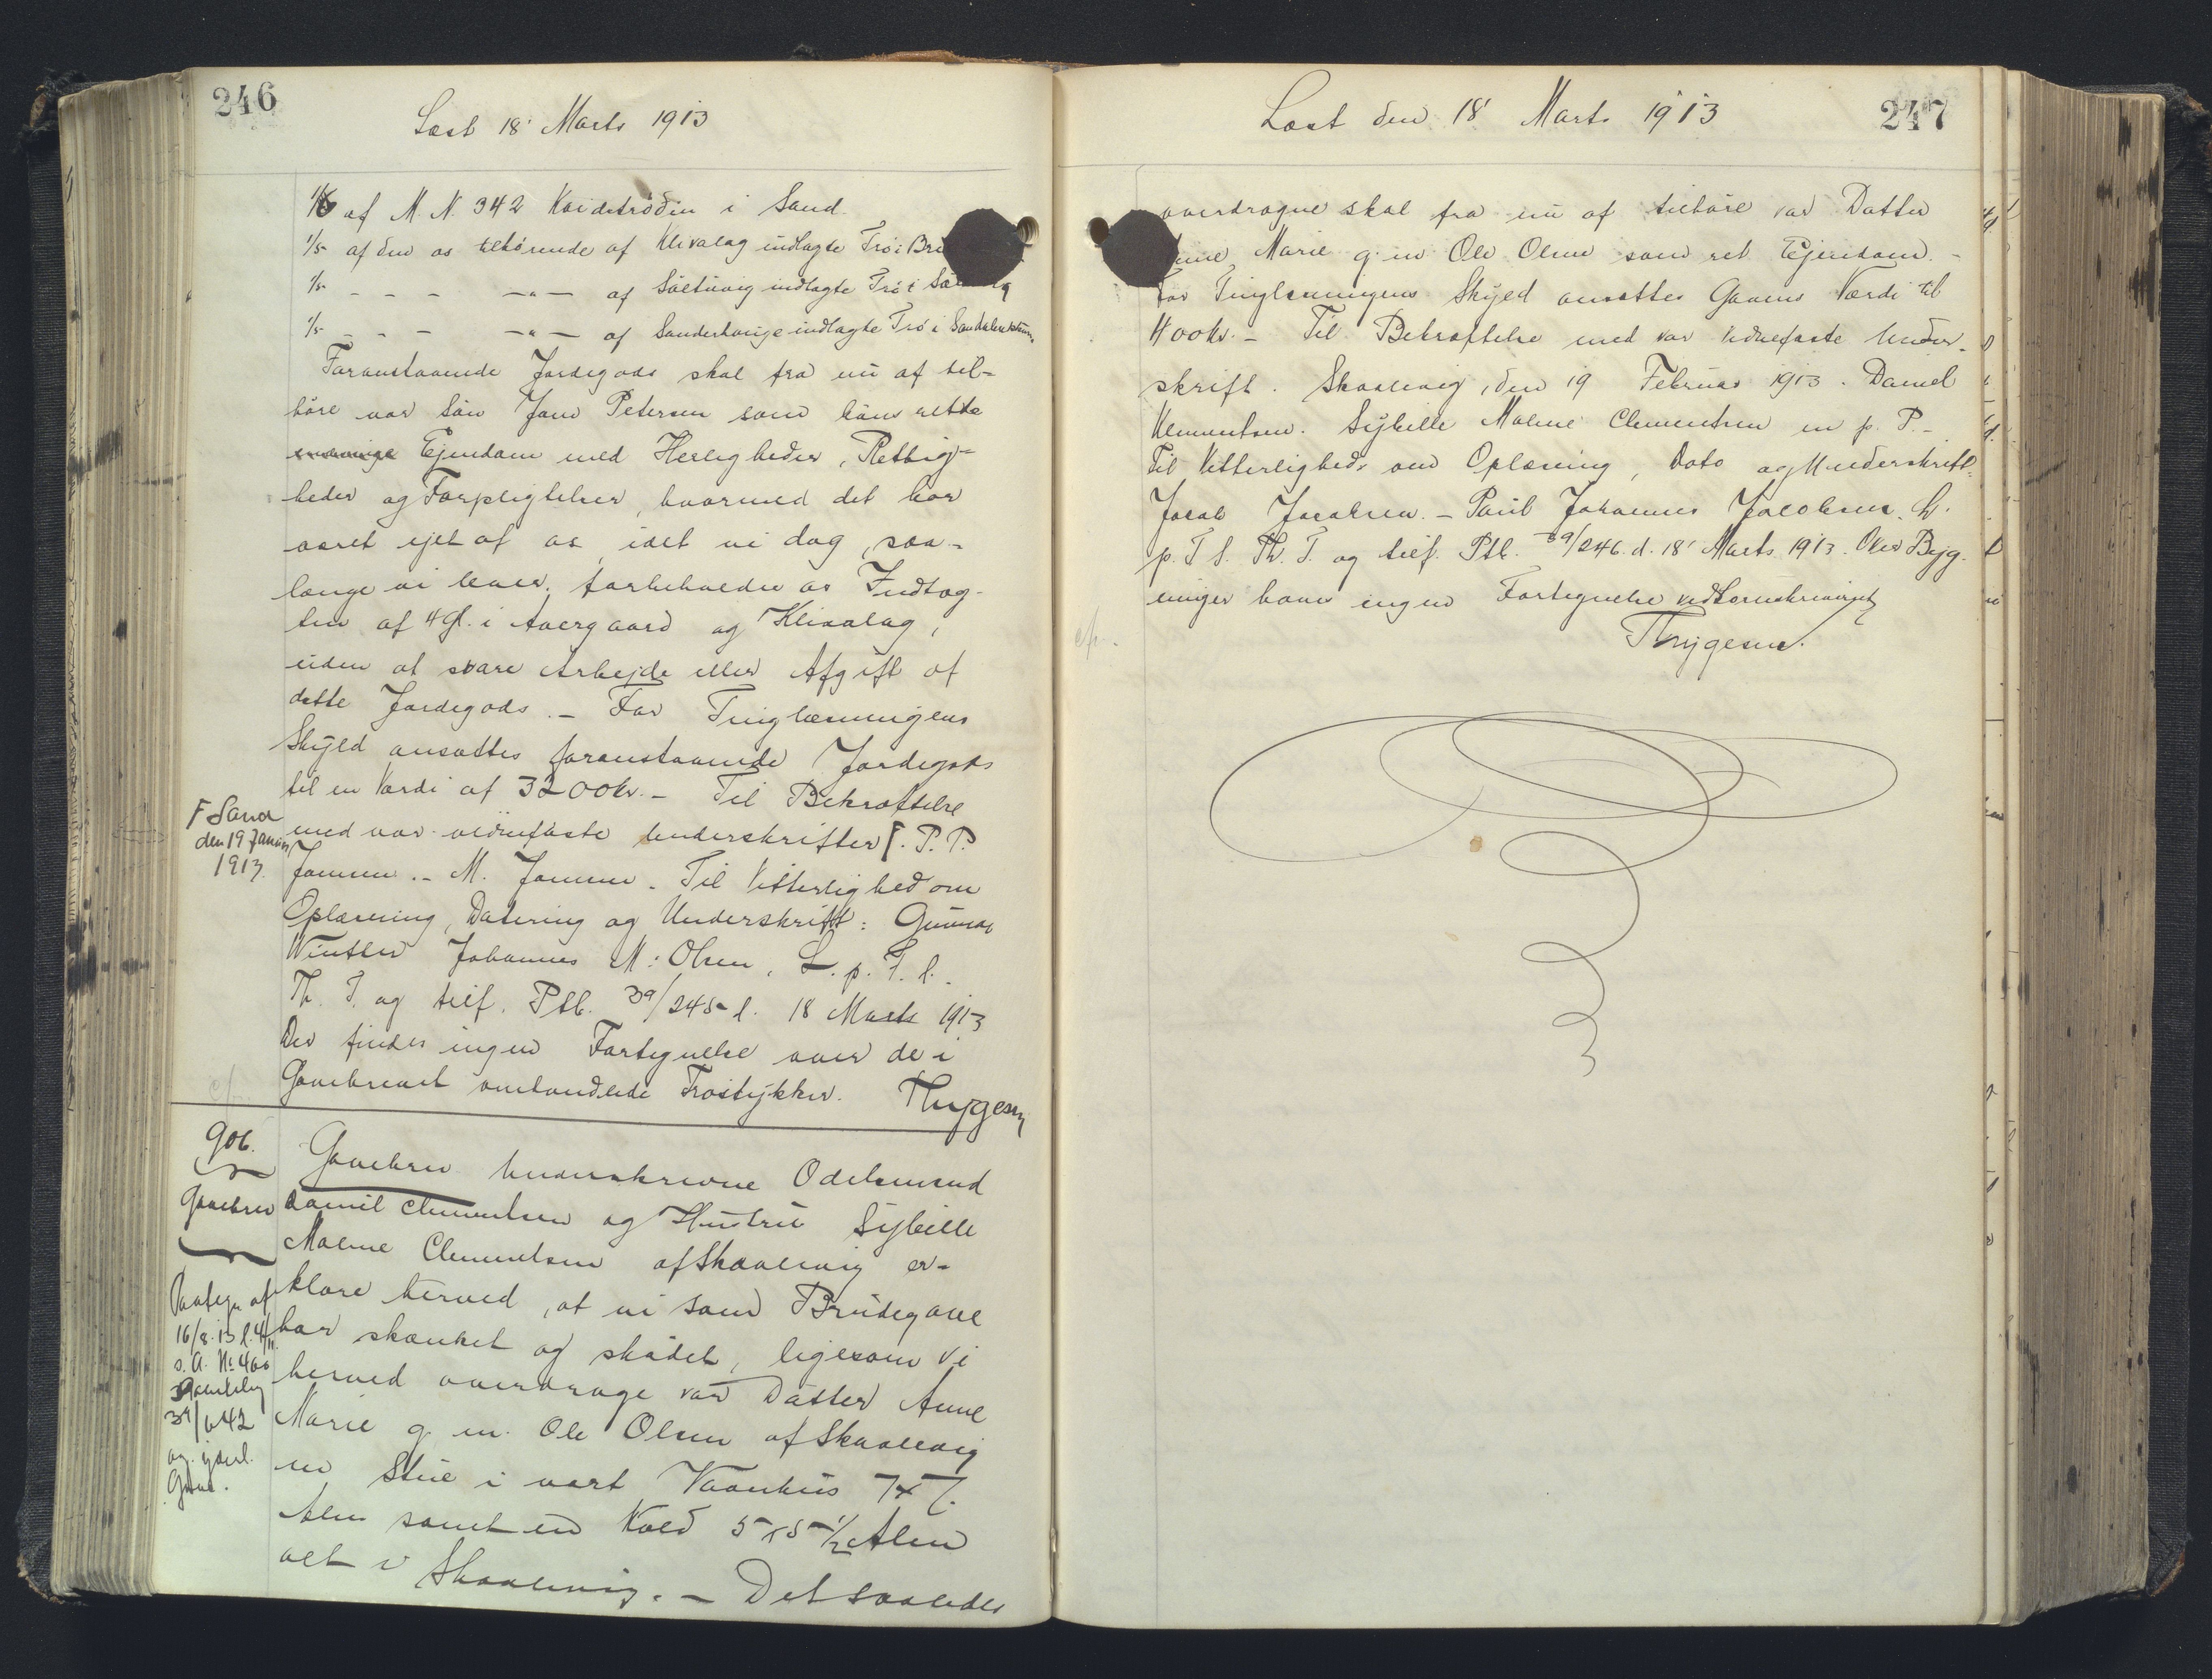 246
Læst 18' Marts 1913
1/6 af M. N. 342 Kvidetrøðin i Sand.
1/5 af den os tilhørende af Klivalag indlagte Trø i
1/5 - - - -"- af indlagte Trø i
1/5 - - - -"- af indlagte Trø i
Foranstaaende Jordegods skal fra nu af til-
høre vor Søn Jens Petersen som hans rette
Ejendom med Herligheder, Rettig-
heder og Forpligtelser, hvormed det har
været ejet af os, idet vi dog, saa-
længe vi lever, forbeholder os Indtæg-
ten af 4 Gl. i Avergaard og Klivalag,
uden at svare Arbejde eller Afgift af
dette Jordegods. - For Tinglæsningens
Skyld ansættes foranstaaende Jordegods
til en Værdi af 3200 Kr. - Til Bekræftelse
med vor vidnefaste Underskrifter Γ. P. P.
Γ Sand
den 19 Januar
1913.
Jensen. - M. Jensen. Til Vitterlighed om
Oplæsning, Datering og Underskrift: Gunnar
Winther Johannes M: Olsen, L. p. T. l.
Th. T. og tilf. Ptb. 39/245 d. 18 Marts 1913
Der findes ingen Fortegnelse over de i
Gavebrevet omhandlede Trøstykker. Thygesen
906.
Gavebrev
Gavebrev Underskrevne Odelsmand
Daniel Clementsen og Hustru Sybille
Malene Clementsen af Skaalevig er-
klære herved, at vi som Brudegave
har skænket og skødet, ligesom vi
herved overdrage vor Datter Anne
Marie g. m. Ole Olsen af Skaalevig
en Stue i vort Vaanhus 7x7
Alen samt en Kold 5x5 1/2 Alen
alt i Skaalevig. - Det saaledes
Paategn. af
16/8.13 l. 4/11.
s. A. No 460
39/642
247
Læst den 18' Marts 1913
overdragne skal fra nu af tilhøre vor Datter
Marie g. m Ole Olsen som ret Ejendom. -
For Tinglæsningens Skyld ansættes Gavens Værdi til
400 Kr. - Til Bekræftelse med vor vidnefaste Under-
skrift. Skaalevig, den 19 Februar 1913. Daniel
Klementsen. Sybille Malene Clementsen m p. P. -
Til Vitterligheds om Oplæsning, Dato og Underskrift:
Jacob Jacobsen. - Poul Johannes Jacobsen. L.
p. T l. Th. T. og tilf. Ptb. 39/246. d. 18' Marts 1913. Over Byg-
ninger haves ingen Fortegnelse ved Sorenskriveriet
Thygesen.